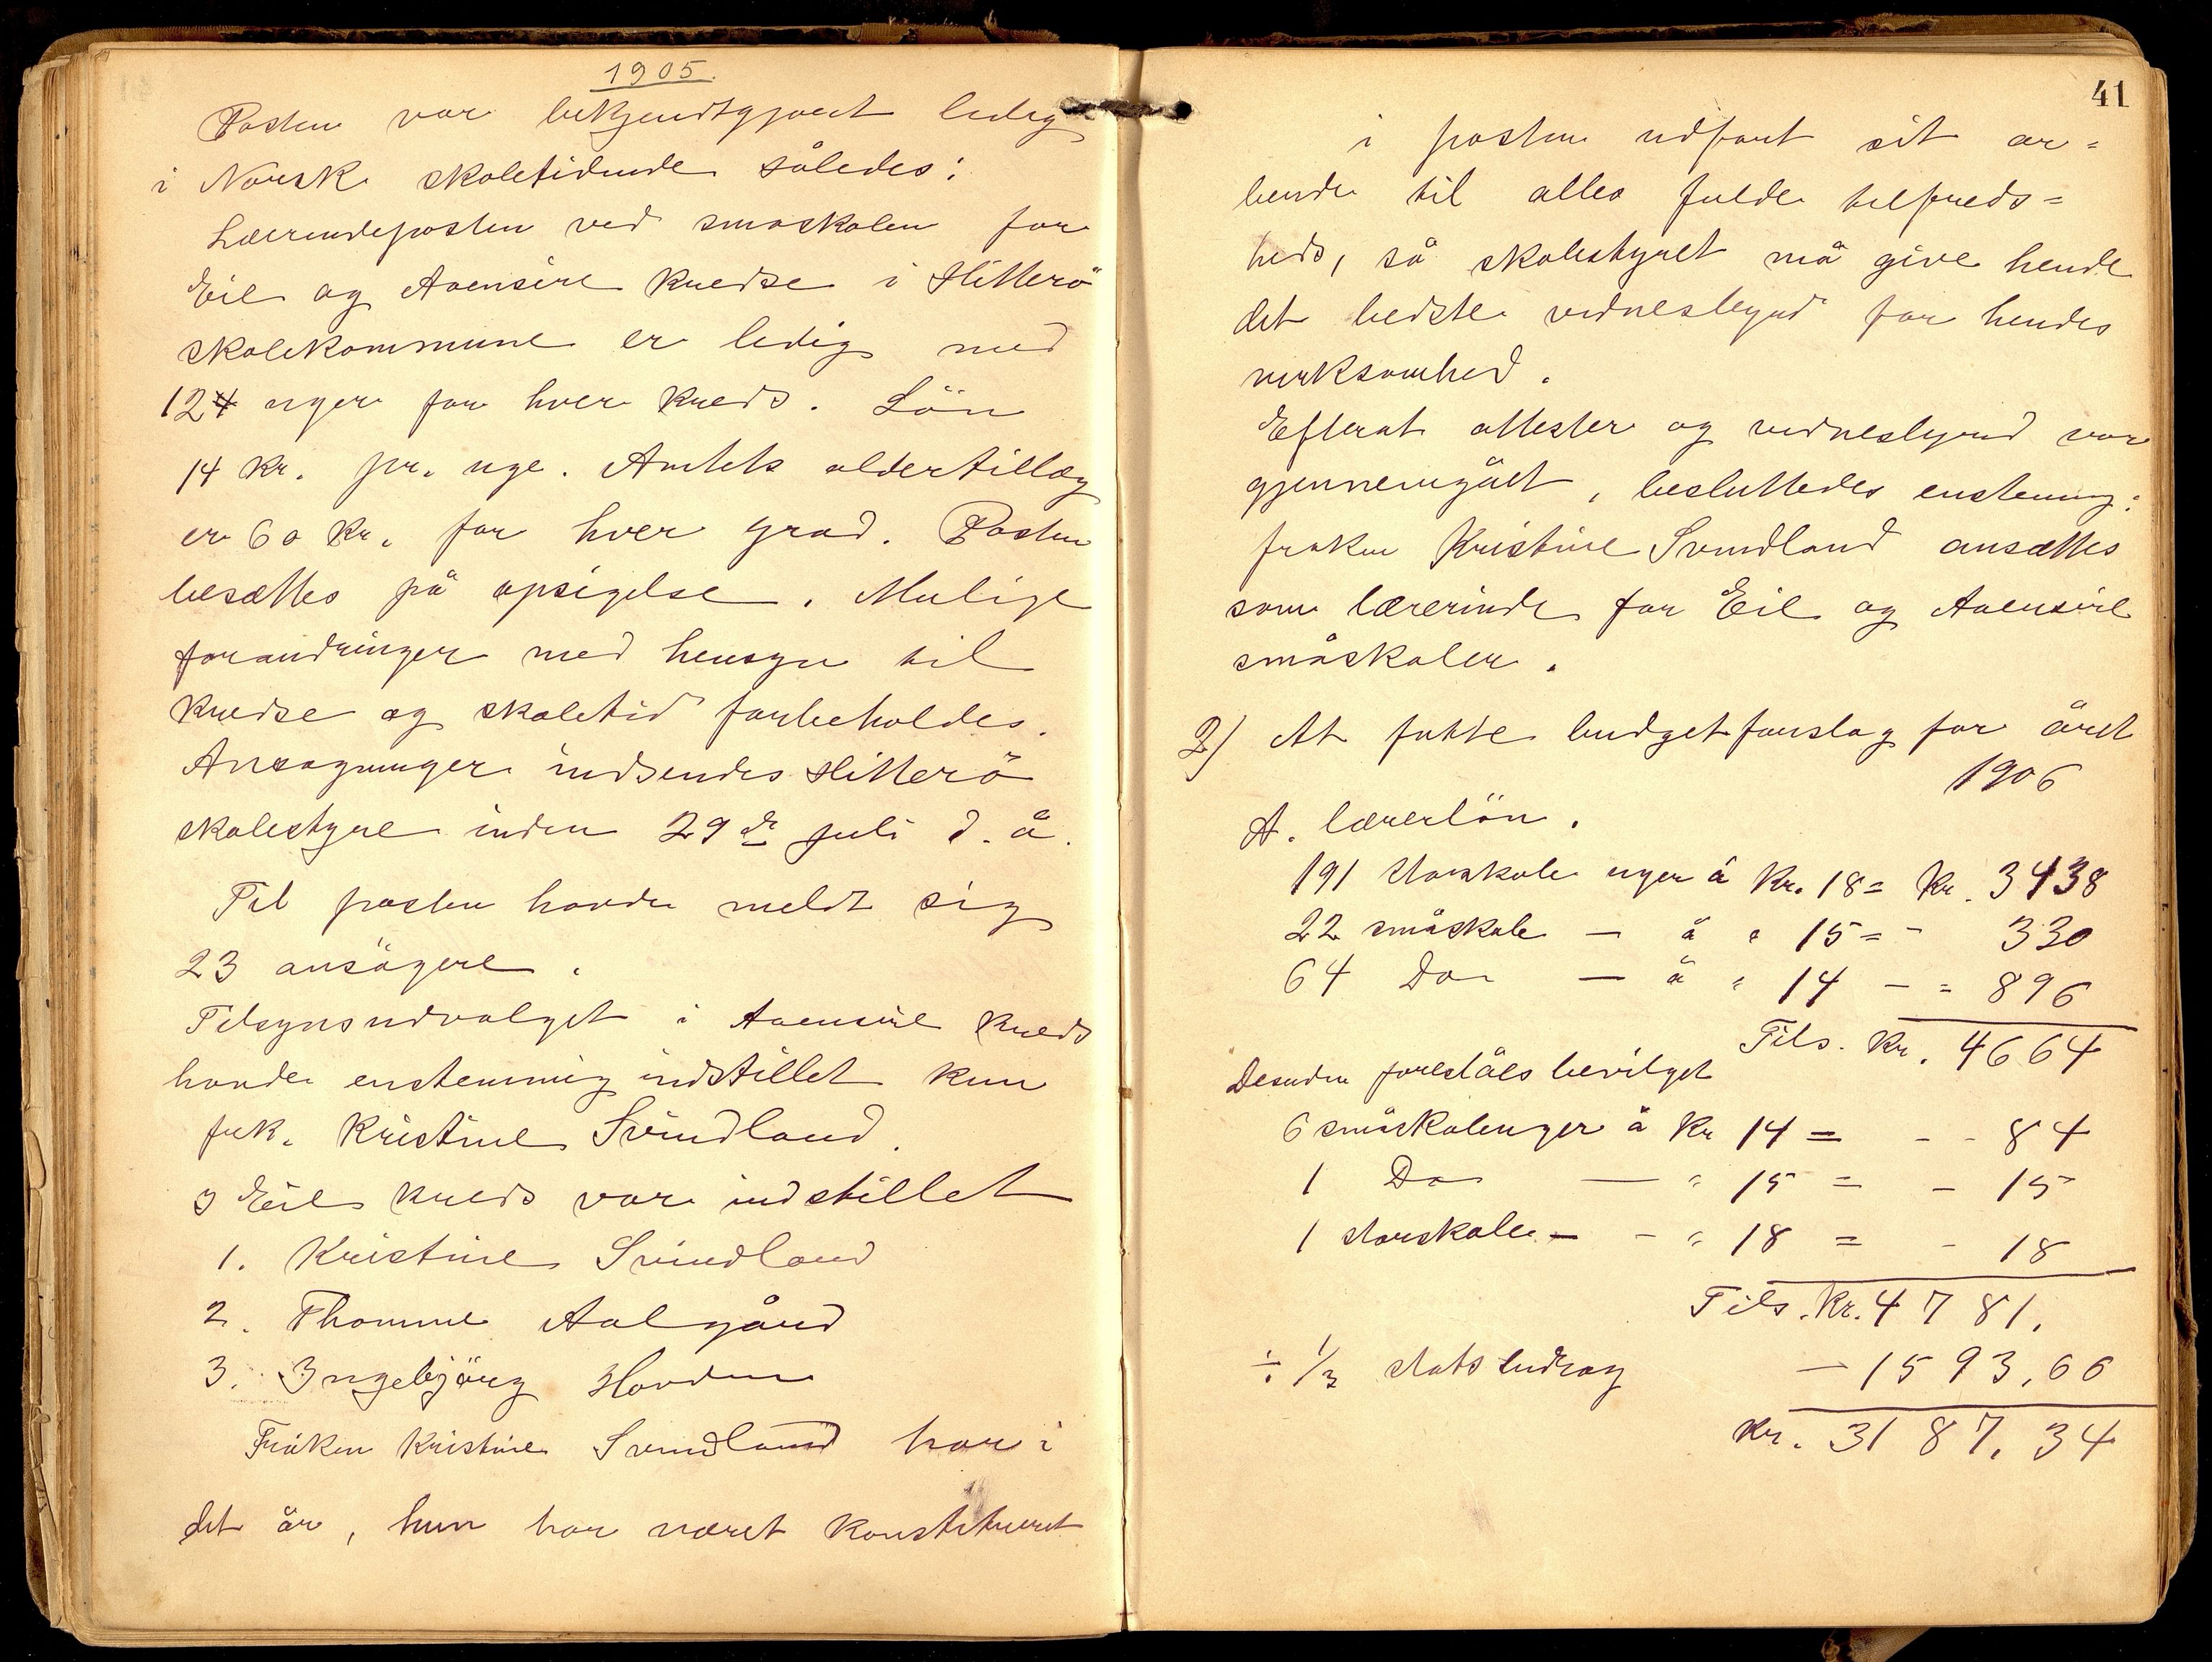 1905.
Posten var bekjendtgjort ledig
i Norsk skoletidende således:
Lærerindeposten ved småskolen for
Eie og Aaensire kredse i Hitterö
skolekommune er ledig med
12 uger for hver kreds. Lön
14 kr. pr. uge. Amtets alderstillæg
er 60 kr. for hver grad. Posten
besættes på opsigelse. Mulige
forandringer med hensyn til
kredse og skoletid forbeholdes.
Ansøgninger indsendes Hitterö
skolestyre inden 29de juli d. å.
Til posten havde meldt sig
23 ansögere.
Tilsynsudvalget i Aaensire kreds
havde enstemmig indstillet kun
frk. Kristine Svindland.
I Eie kreds var indstillet
1. Kristine Svindland
2. Thomine Aalgård
3. Ingebjörg Hovden
Fröken Kristine Svindland har i
det år, hun har været konstitueret
41
i posten udført sit ar=
beide til alles fulde tilfreds=
hed, så skolestyret må give hende
det bedste vidnesbyrd for hendes
virksomhed.
Efterat attester og vidnesbyrd var
gjennemgået, besluttedes enstemmig:
frøken Kristine Svindland ansættes
som lærerinde for Eie og Aaensire
småskoler.
2) At fatte budgetforslag for året
1906
A. lærerlön.
191 storskole uger á kr. 18 = kr. 3438
22 småskole — á " 15 = - 330
64 Do — á " 14 - = 896
Tils. kr. 4664
Desuden foreslåes bevilget
6 småskoleuger á kr 14 = - - 84
1 Do — " 15 = - 15
1 storskole - - " 18 = - 18
Tils. kr. 4781.
÷ 1/3 statsbidrag — 1593,66
kr. 3187,34